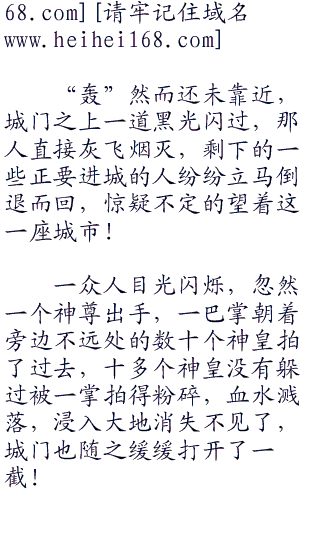 68.com][请牢记住域名
www.heihei168.com]
“轰”然而还未靠近，
城门之上一道黑光闪过，那
人直接灰飞烟灭，剩下的一
些正要进城的人纷纷立马倒
退而回，惊疑不定的望着这
一座城市！
一众人目光闪烁，忽然
一个神尊出手，一巴掌朝着
旁边不远处的数十个神皇拍
了过去，十多个神皇没有躲
过被一掌拍得粉碎，血水溅
落，浸入大地消失不见了，
城门也随之缓缓打开了一
截！